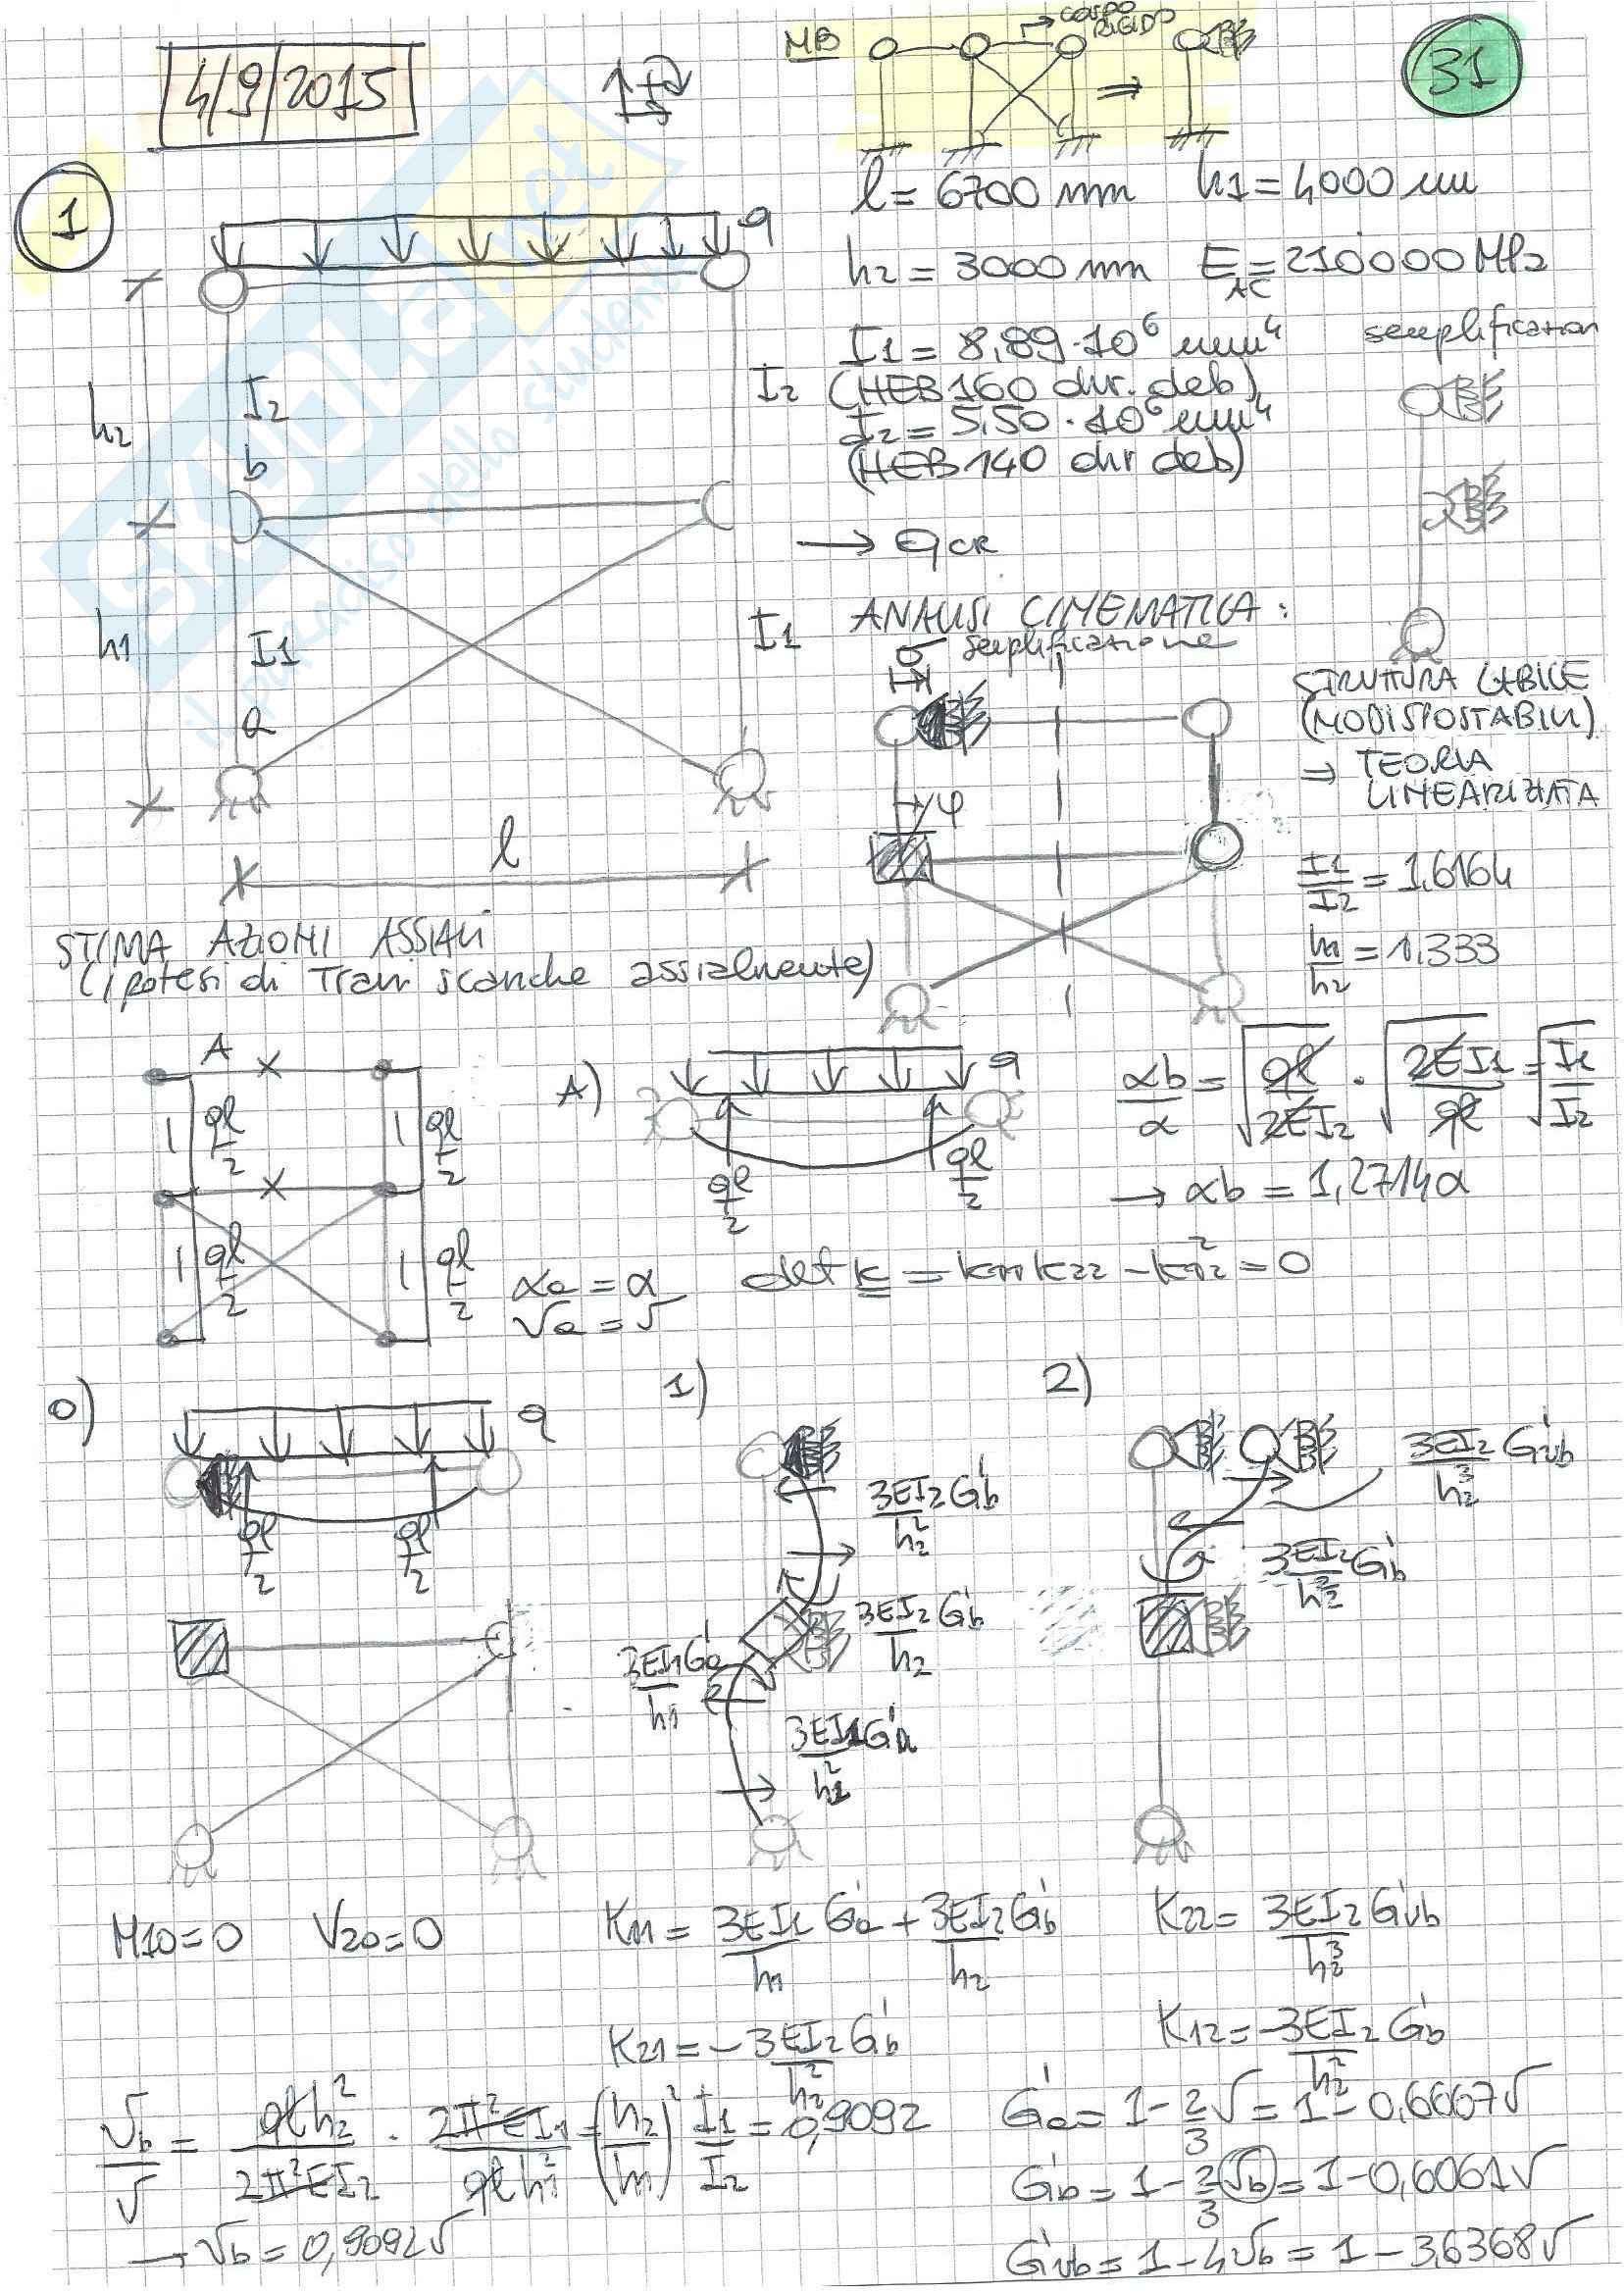 4/9/2015
MB
CORPO RIGIDO
⇒
31
1
l = 6700 mm h1 = 4000 mm
q
h2 = 3000 mm E = 210000 MPa
AC
I1 = 8,89·10⁶ mm⁴
(HEB160 dir. deb)
I2 = 5,50·10⁶ mm⁴
(HEB140 dir deb)
h2
I2
I2
b
→ qCR
h1
I1
I1
a
l
ANALISI CINEMATICA:
semplificazione
δ
φ
STRUTTURA LABILE
(NODI SPOSTABILI)
⇒ TEORIA
LINEARIZZATA
I1/I2 = 1,6164
h1/h2 = 1,333
STIMA AZIONI ASSIALI
(ipotesi di Travi scariche assialmente)
A
ql/2 ql/2
ql/2 ql/2
A) q
ql/2 ql/2
αb/α = √(ql/2EI2) · √(2EI1/ql) = √(I1/I2)
→ αb = 1,2714α
αa = α
√a = √
det K = K11 K22 - K12² = 0
0) q
ql/2 ql/2
1)
3EI2 G'b/h2²
3EI2 G'b/h2
3EI1 G'a/h1
3EI1 G'a/h1²
2)
3EI2 G'vb/h2³
3EI2 G'b/h2²
M10=0 V20=0
K11 = 3EI1 G'a/h1 + 3EI2 G'b/h2
K22 = 3EI2 G'vb/h2³
K21 = -3EI2 G'b/h2²
K12 = -3EI2 G'b/h2²
√b/√ = qlh2²/2π²EI2 · 2π²EI1/qlh1² = (h2/h1)² I1/I2 = 0,9092
→ √b = 0,9092√
G'a = 1 - 2/3 √ = 1 - 0,6667√
G'b = 1 - 2/3 √b = 1 - 0,6061√
G'vb = 1 - 4√b = 1 - 3,6368√
skuola.net
il paradiso dello studente